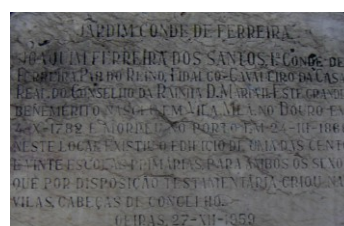 JARDIM CONDE DE FERREIRA
JOAQUIM FERREIRA DOS SANTOS, 1º CONDE DE
FERREIRA, PAR DO REINO, FIDALGO-CAVALEIRO DA CASA
REAL, DO CONSELHO DA RAINHA D. MARIA II. ESTE GRANDE
BENEMÉRITO NASCEU EM VILA MEÃ, NO DOURO EM
1782 E MORREU NO PORTO EM 24-III-1866
NESTE LOCAL EXISTIU O EDIFICIO DE UMA DAS CENTO
E VINTE ESCOLAS PRIMÁRIAS PARA AMBOS OS SEXOS
QUE POR DISPOSIÇÃO TESTAMENTÁRIA CRIOU NAS
VILAS, CABEÇAS DE CONCELHO.
OEIRAS, 27-XII-1959